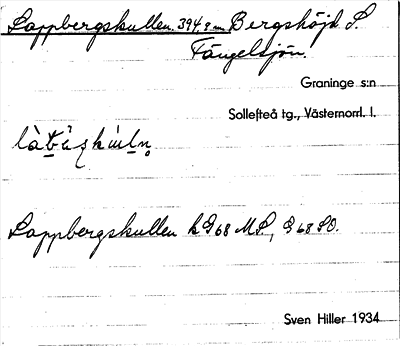 Lappbergskullen. 394,9 m Bergshöjd S.
Fängelsjön.
Graninge s:n
Sollefteå tg., Västernorrl. l.
Lappbergskullen k G 68 MS, G 68 SO.
Sven Hiller 1934